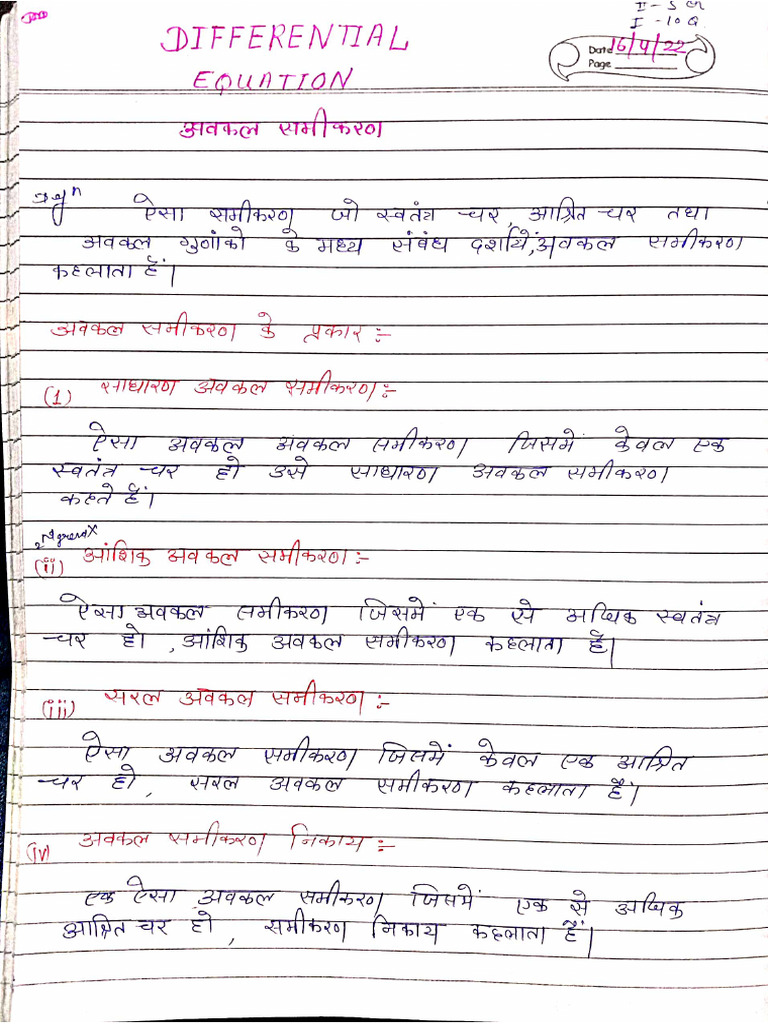 II - 5 Ch
I - 10 Q
DIFFERENTIAL
Date 16/9/22
Page
EQUATION
अवकल समीकरण
ऐसा समीकरण जो स्वतंत्र चर, आश्रित चर तथा
अवकल गुणांको के मध्य संबंध दर्शाये, अवकल समीकरण
कहलाता हैं।
अवकल समीकरण के प्रकार :-
(1) साधारण अवकल समीकरण :-
ऐसा अवकल अवकल समीकरण जिसमें केवल एक
स्वतंत्र चर हो उसे साधारण अवकल समीकरण
कहते हैं।
(ii) आंशिक अवकल समीकरण :-
ऐसा अवकल समीकरण जिसमें एक से अधिक स्वतंत्र
चर हो, आंशिक अवकल समीकरण कहलाता है।
(iii) सरल अवकल समीकरण :-
ऐसा अवकल समीकरण जिसमें केवल एक आश्रित
चर हो, सरल अवकल समीकरण कहलाता हैं।
(iv) अवकल समीकरण निकाय :-
एक ऐसा अवकल समीकरण जिसमें एक से अधिक
आश्रित चर हो, समीकरण निकाय कहलाता हैं।